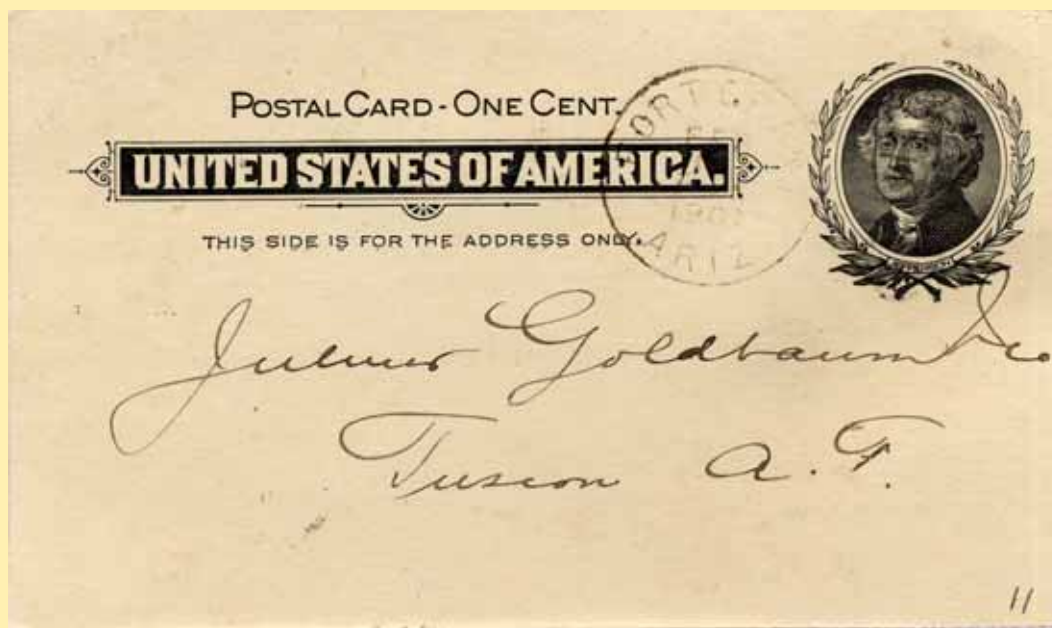 POSTAL CARD - ONE CENT.
UNITED STATES OF AMERICA.
THIS SIDE IS FOR THE ADDRESS ONLY.
ORT G
FE
190
ARIZ
JEFFERSON
Goldbaum & Co
Tuscon A. T.
11